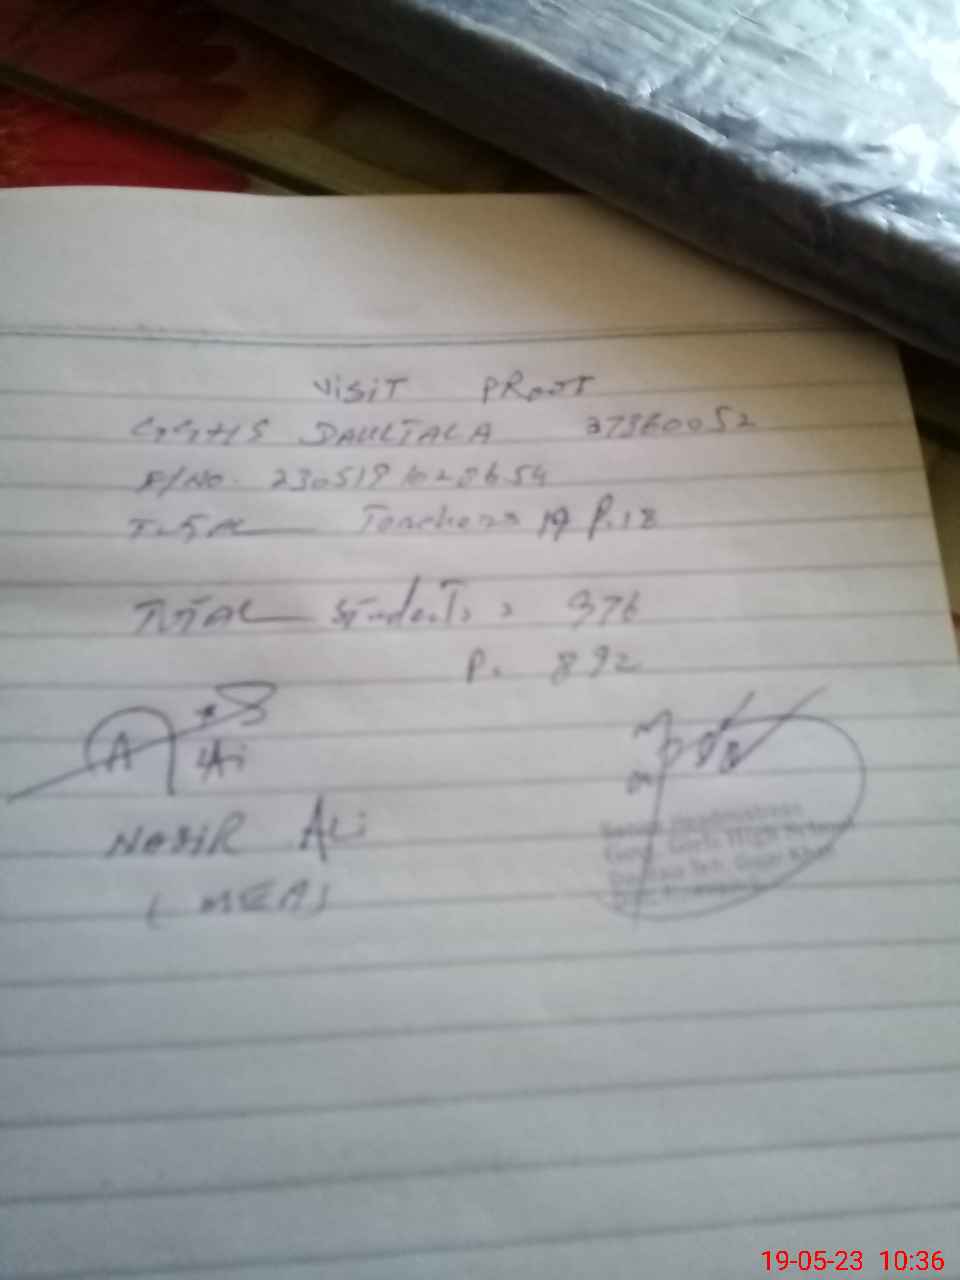 VISIT PROOT
GGHS DAULTALA 37360052
F/NO. 230519 1028654
TOTAL Teachers 19 P.18
TOTAL Students = 976
P. 892
A Ali
NASIR ALI
(MEA)
Senior Headmistress
Govt. Girls High School
Daultala Teh. Gujar Khan
19-05-23 10:36